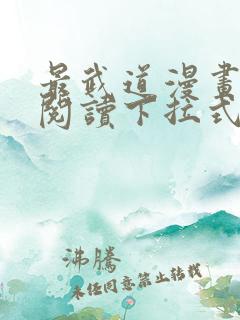 最武道漫畫
閱讀下拉式
沸騰
未经同意禁止转载